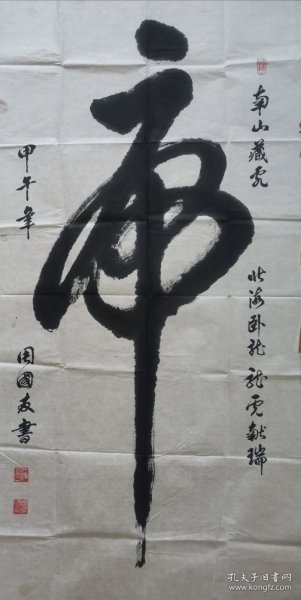 南山藏虎
北海卧龙 龙虎献瑞
虎
甲午年
周國友書
孔夫子旧书网
www.kongfz.com